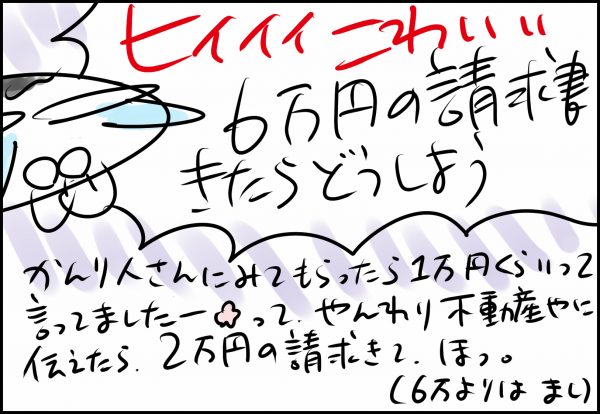 ヒィィィこわいぃ
6万円の請求書
きたらどうしよう
かんり人さんにみてもらったら1万円くらいって
言ってましたーって、やんわり不動産やに
伝えたら、2万円の請求きて、ほっ。
(6万よりは まし)